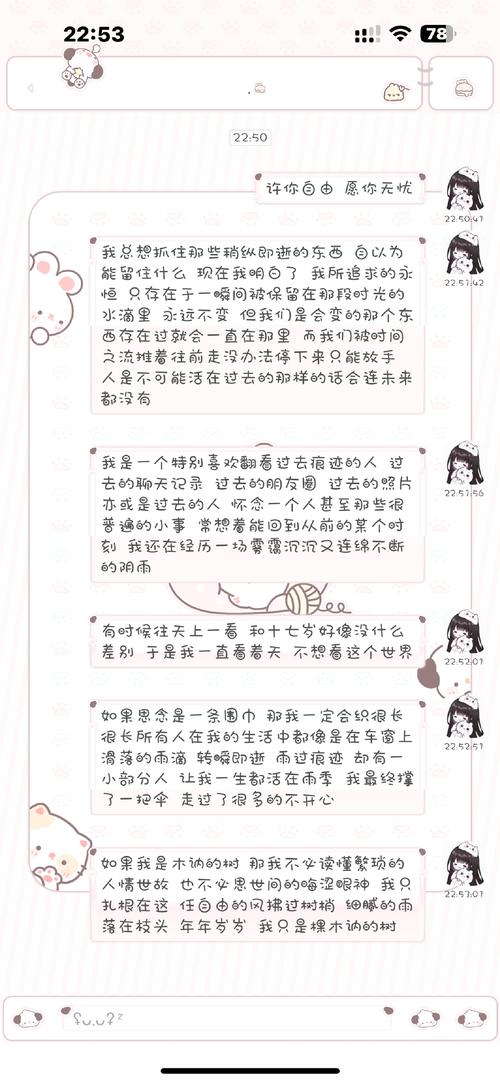 22:53
78
22:50
许你自由 愿你无忧
22:50:41
我总想抓住那些稍纵即逝的东西 自以为
能留住什么 现在我明白了 我所追求的永
恒 只存在于一瞬间被保留在那段时光的
水滴里 永远不变 但我们是会变的那个东
西存在过就会一直在那里 而我们被时间
之流推着往前走没办法停下来只能放手
人是不可能活在过去的那样的话会连未来
都没有
22:51:42
我是一个特别喜欢翻看过去痕迹的人 过
去的聊天记录 过去的朋友圈 过去的照片
亦或是过去的人 怀念一个人甚至那些很
普遍的小事 常想着能回到从前的某个时
刻 我还在经历一场雾霭沉沉又连绵不断
的阴雨
22:51:56
有时候往天上一看 和十七岁好像没什么
差别 于是我一直看着天 不想看这个世界
22:52:01
如果思念是一条围巾 那我一定会织很长
很长所有人在我的生活中都像是在车窗上
滑落的雨滴 转瞬即逝 雨过痕迹 却有一
小部分人 让我一生都活在雨季 我最终撑
了一把伞 走过了很多的不开心
22:52:51
如果我是木讷的树 那我不必读懂繁琐的
人情世故 也不必思世间的晦涩眼神 我只
扎根在这 任自由的风拂过树梢 细腻的雨
落在枝头 年年岁岁 我只是棵木讷的树
22:53:01